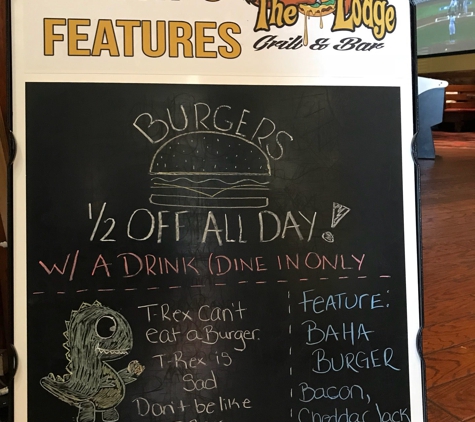 The Lodge
FEATURES
Grill & Bar
BURGERS
1/2 OFF ALL DAY!
W/ A DRINK (DINE IN ONLY
T-Rex Can't
eat a Burger.
T-Rex is
Sad
Don't be like
FEATURE:
BAHA
BURGER
Bacon,
Cheddar Jack